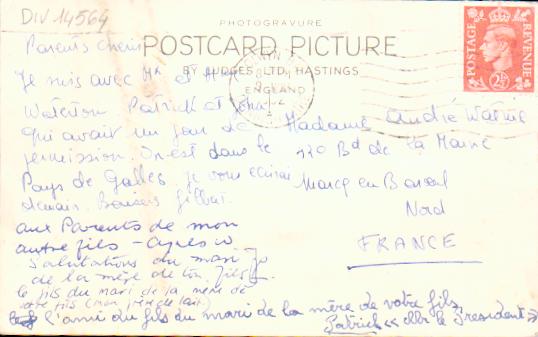 DIV 14564
PHOTOGRAVURE
Parents chéris
POSTCARD PICTURE
BY JUDGES LTD, HASTINGS
ENGLAND
POSTAGE REVENUE
2½
Je suis avec Mr et
Waterton Patrick et John
qui avait un jour de
permission. On est dans le
Pays de Galles je vous écrirai
demain. Baisers Gilbert
Madame André
130 Bd de la Marne
Marcq en Baroeul
Nord
FRANCE
aux Parents de mon
autre fils -
Salutations du mari
de la mère de ton fils
le fils du mari de la mère de
votre fils (mon frère de lait)
l'ami du fils du mari de la mère de votre fils,
Patrick «